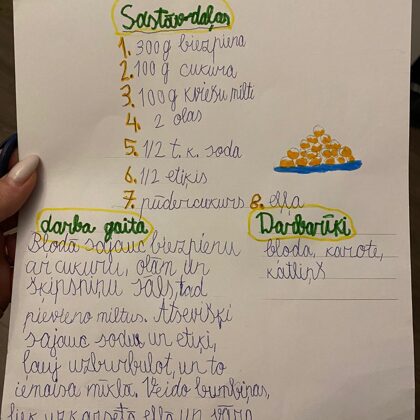 Sastāvdaļas
1. 300 g biezpiena
2. 100 g cukura
3. 100 g kviešu milti
4. 2 olas
5. 1/2 t. k. soda
6. 1/2 etiķis
7. pūdercukurs 8. eļļa
darba gaita
Bļodā sajauc biezpienu
ar cukuru, olām un
šķipsniņu sāls, tad
pievieno miltus. Atsevišķi
sajauc sodu un etiķi,
ļauj uzburbuļot, un to
iemaisa mīklā. Veido bumbiņas,
liek uzkarsētā eļļā un vāra
Darbarīki
bļoda, karote,
katliņš